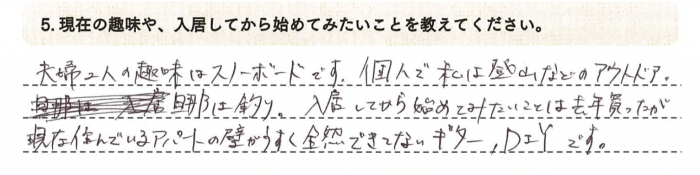 5. 現在の趣味や、入居してから始めてみたいことを教えてください。
夫婦2人の趣味はスノーボードです。個人で私は登山などのアウトドア。
旦那は釣り。入居してから始めてみたいことは去年買ったが
現在住んでいるアパートの壁がうすく全然できてないギター、DIYです。